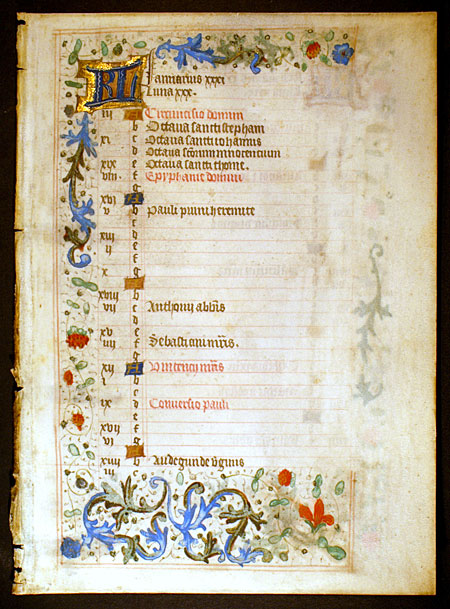 KL Januarius xxxi
Luna xxx.
iii A Circu͂cisio domini
b Octava sancti stephani
xi c Octava sancti iohannis
d Octava sc̄oꝝ innocentium
xix e Octava sancti thome.
viii f Epyphania domini
g
xvi A
v b Pauli primi heremite
c
xiii d
ii e
f
x g
A
xviii b
vii c Anthonii abb̄is
d
xv e
iiii f Sebastiani mr̄is.
g
xii A Vincencii mr̄is
i b
c
ix d Conversio pauli
e
xvii f
vi g
A
xiiii b Audegunde v̄ginis
iii c